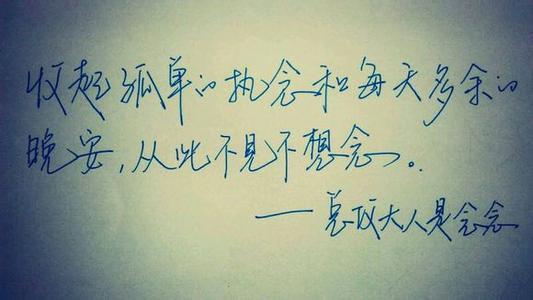 收起孤单的执念和每天多余的
晚安,从此不见不想念。
——总攻大人是念念